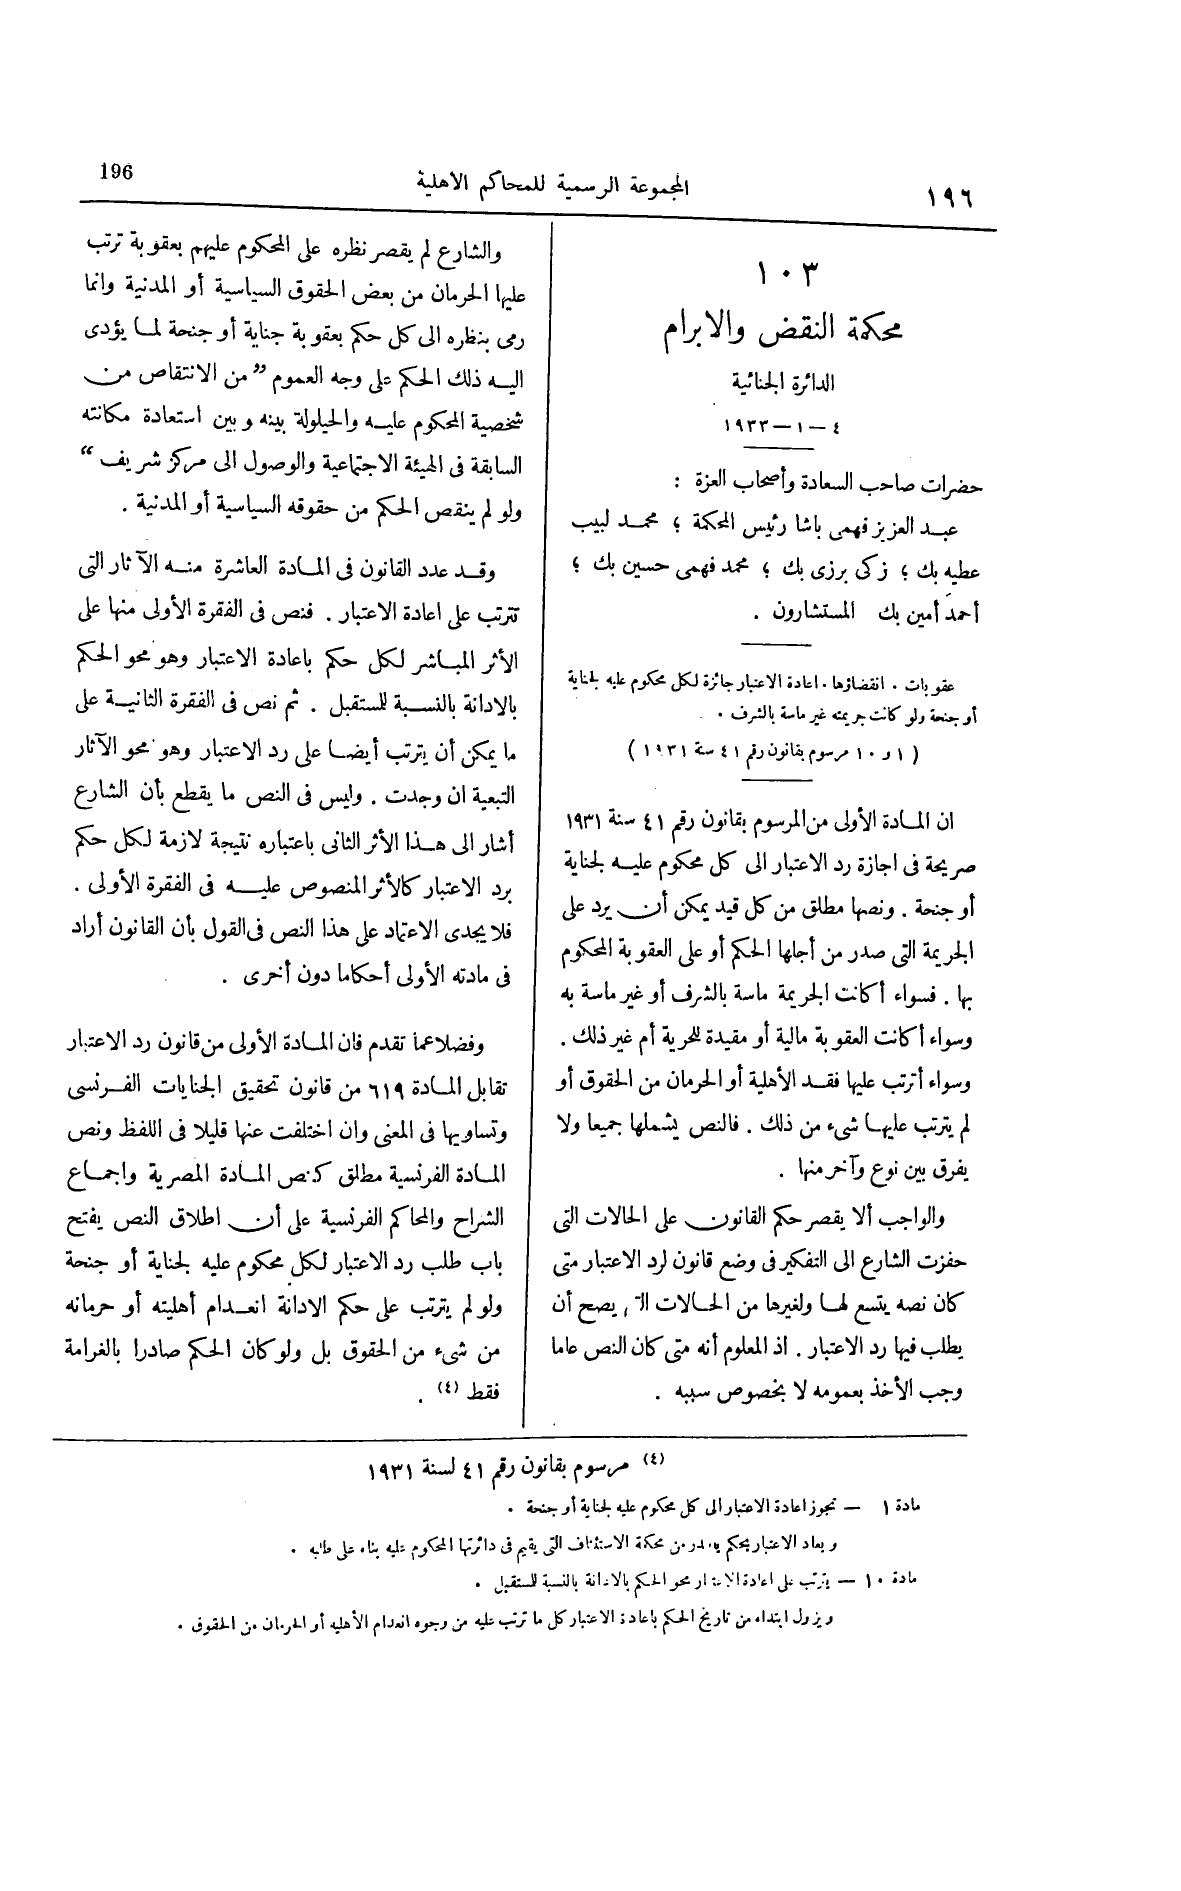 196
المجموعة الرسمية للمحاكم الاهلية
١٩٦
١٠٣
محكمة النقض والابرام
الدائرة الجنائية
٤ – ١ – ١٩٣٣
حضرات صاحب السعادة وأصحاب العزة :
عبد العزيز فهمى باشا رئيس المحكمة ؛ محمد لبيب
عطيه بك ؛ زكى برزى بك ؛ محمد فهمى حسين بك ؛
أحمد أمين بك المستشارون .
عقوبات . انقضاؤها . اعادة الاعتبار جائزة لكل محكوم عليه لجناية
أو جنحة ولو كانت جريمته غير ماسة بالشرف .
( ١ و ١٠ مرسوم بقانون رقم ٤١ سنة ١٩٣١ )
ان المادة الأولى من المرسوم بقانون رقم ٤١ سنة ١٩٣١
صريحة فى اجازة رد الاعتبار الى كل محكوم عليه لجناية
أو جنحة . ونصها مطلق من كل قيد يمكن أن يرد على
الجريمة التى صدر من أجلها الحكم أو على العقوبة المحكوم
بها . فسواء أكانت الجريمة ماسة بالشرف أو غير ماسة به
وسواء أكانت العقوبة مالية أو مقيدة للحرية أم غير ذلك .
وسواء أترتب عليها فقد الأهلية أو الحرمان من الحقوق أو
لم يترتب عليها شىء من ذلك . فالنص يشملها جميعا ولا
يفرق بين نوع وآخر منها .
والواجب ألا يقصر حكم القانون على الحالات التى
حفزت الشارع الى التفكير فى وضع قانون لرد الاعتبار متى
كان نصه يتسع لها ولغيرها من الحالات يصح أن
يطلب فيها رد الاعتبار . اذ المعلوم أنه متى كان النص عاما
وجب الأخذ بعمومه لا بخصوص سببه .
والشارع لم يقصر نظره على المحكوم عليهم بعقوبة ترتب
عليها الحرمان من بعض الحقوق السياسية أو المدنية وانما
رمى بنظره الى كل حكم بعقوبة جناية أو جنحة لما يؤدى
اليه ذلك الحكم على وجه العموم ” من الانتقاص من
شخصية المحكوم عليه والحيلولة بينه وبين استعادة مكانته
السابقة فى الهيئة الاجتماعية والوصول الى مركز شريف “
ولو لم ينقص الحكم من حقوقه السياسية أو المدنية .
وقد عدد القانون فى المادة العاشرة منه الآثار التى
تترتب على اعادة الاعتبار . فنص فى الفقرة الأولى منها على
الأثر المباشر لكل حكم باعادة الاعتبار وهو محو الحكم
بالادانة بالنسبة للمستقبل . ثم نص فى الفقرة الثانية على
ما يمكن أن يترتب أيضا على رد الاعتبار وهو محو الآثار
التبعية ان وجدت . وليس فى النص ما يقطع بأن الشارع
أشار الى هذا الأثر الثانى باعتباره نتيجة لازمة لكل حكم
برد الاعتبار كالأثر المنصوص عليه فى الفقرة الأولى .
فلا يجدى الاعتماد على هذا النص فى القول بأن القانون أراد
فى مادته الأولى أحكاما دون أخرى .
وفضلا عما تقدم فان المادة الأولى من قانون رد الاعتبار
تقابل المادة ٦١٩ من قانون تحقيق الجنايات الفرنسى
وتساويها فى المعنى وان اختلفت عنها قليلا فى اللفظ ونص
المادة الفرنسية مطلق كنص المادة المصرية واجماع
الشراح والمحاكم الفرنسية على أن اطلاق النص يفتح
باب طلب رد الاعتبار لكل محكوم عليه لجناية أو جنحة
ولو لم يترتب على حكم الادانة انعدام أهليته أو حرمانه
من شىء من الحقوق بل ولو كان الحكم صادرا بالغرامة
فقط (٤) .
(٤) مرسوم بقانون رقم ٤١ لسنة ١٩٣١
مادة ١ — تجوز اعادة الاعتبار الى كل محكوم عليه لجناية أو جنحة .
ويعاد الاعتبار بحكم يصدر من محكمة الاستئناف التى يقيم فى دائرتها المحكوم عليه بناء على طلبه .
مادة ١٠ — يترتب على اعادة الاعتبار محو الحكم بالادانة بالنسبة للمستقبل .
ويزول ابتداء من تاريخ الحكم باعادة الاعتبار كل ما ترتب عليه من وجوه انعدام الأهليه أو الحرمان من الحقوق .